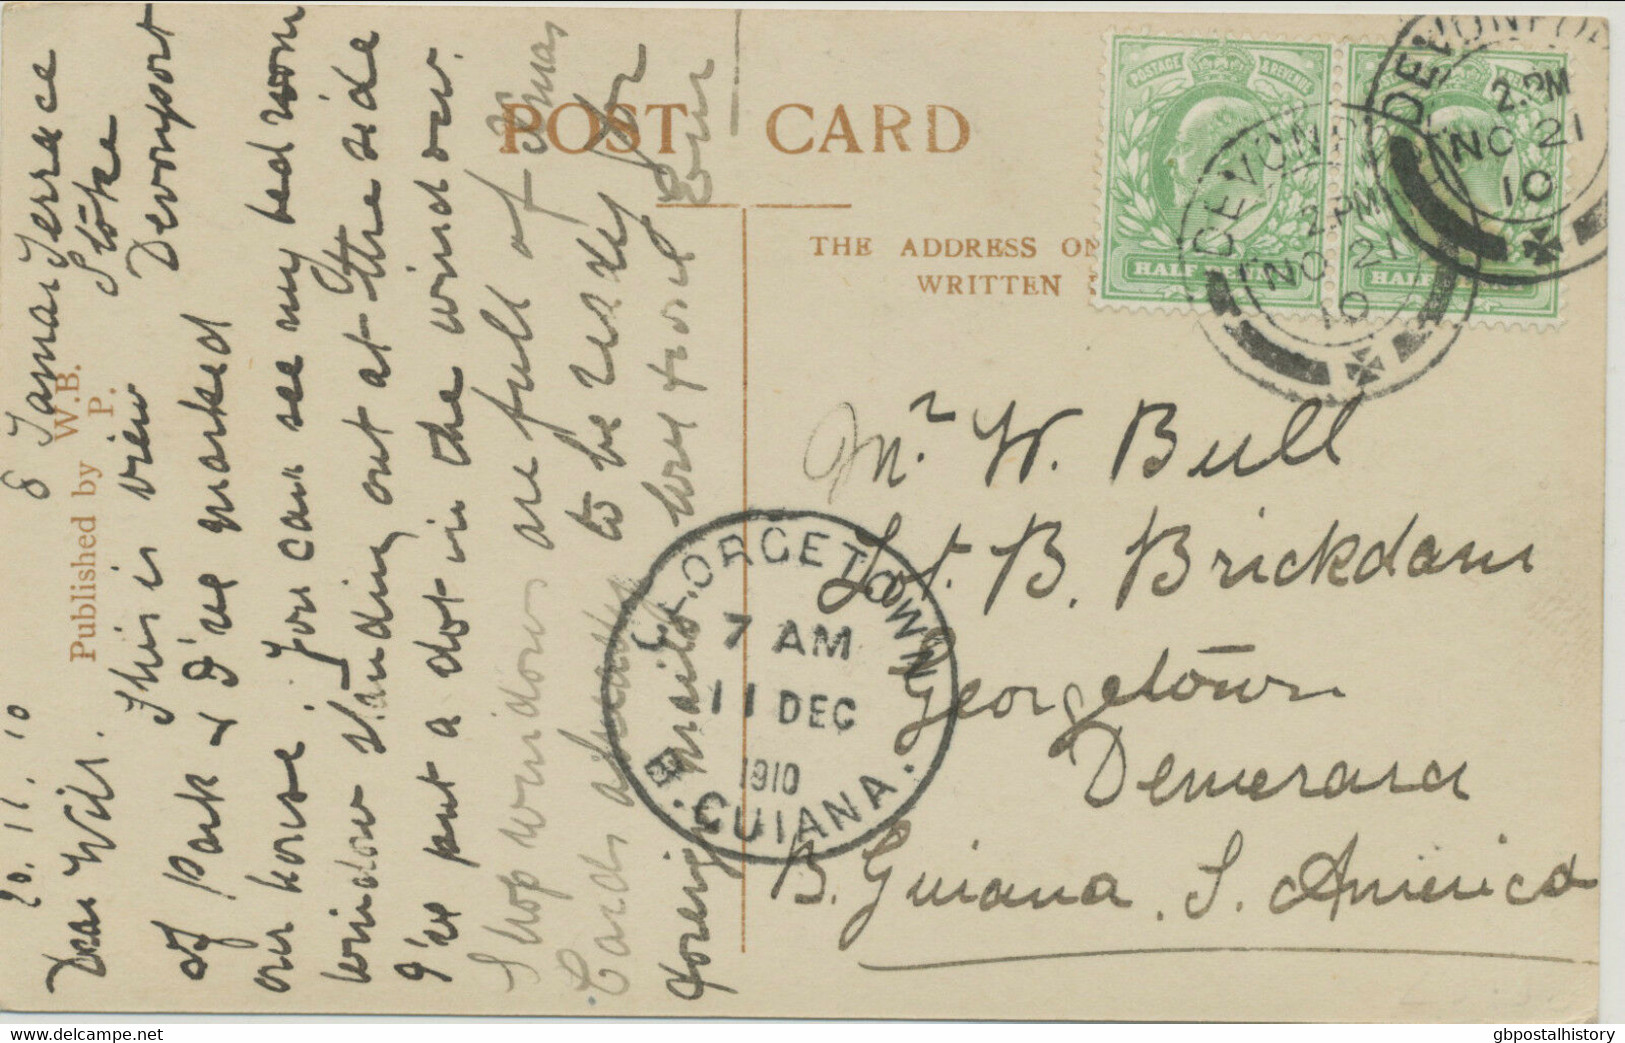 POST CARD
THE ADDRESS ON
WRITTEN
Published by W.B.
P.
POSTAGE & REVENUE
HALF PENNY
HALF PENNY
DEVONPORT
2.PM
NO 21
10
DEVONPO
2.PM
NO 21
10
GEORGETOWN
7 AM
11 DEC
1910
B. GUIANA.
Mr. W. Bull
Lot. B. Brickdam
Georgetown
Demerara
B. Guiana. S. America
8 Tamar Terrace
Stoke
Devonport
20.11.10
Dear Will. This is view
of Park & I've marked
our house. You can see my bed room
window standing out at the side
I've put a dot in the window.
Shop windows are full of Xmas
Cards already to be ready for
foreign mails.
Love from Em